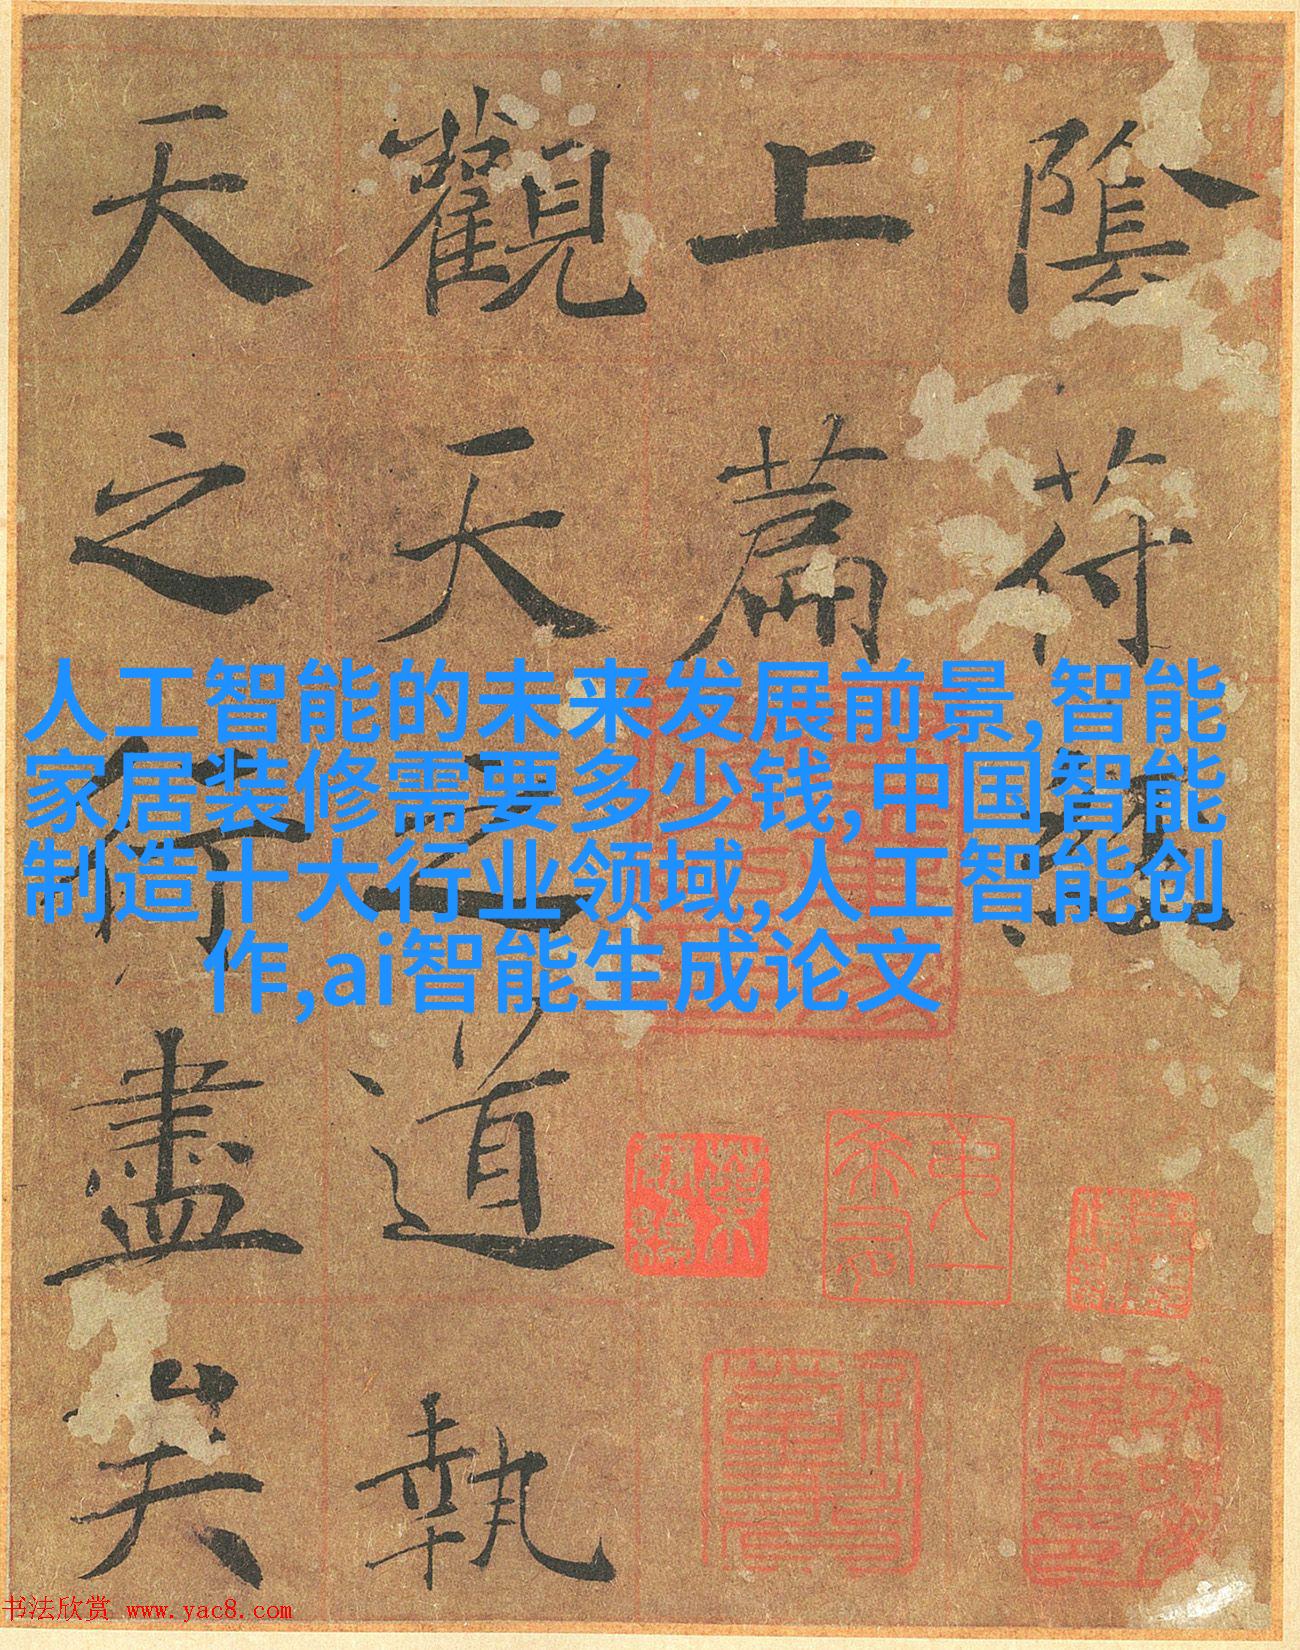 陰符經
上篇
觀天之道執
天之行盡矣
人工智能的未来发展前景,智能
家居装修需要多少钱,中国智能
制造十大行业领域,人工智能创
作,ai智能生成论文
书法欣赏 www.yac8.com